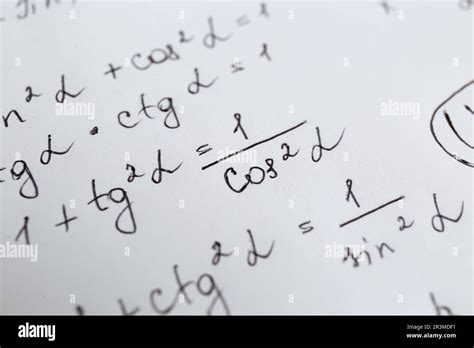 n² α + cos² α = 1
tg α · ctg α = 1
1 + tg² α = 1 / cos² α
+ ctg² α = 1 / sin² α
alamy
Image ID: 2R3MDF1
www.alamy.com